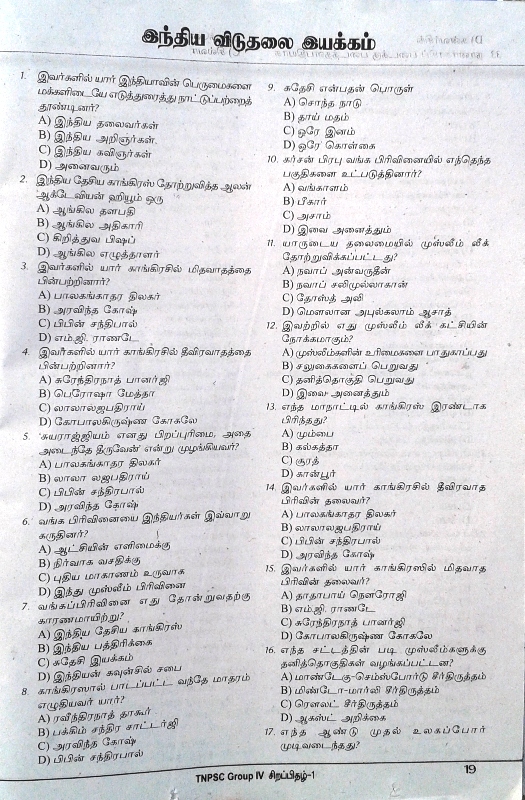 இந்திய விடுதலை இயக்கம்
1. இவர்களில் யார் இந்தியாவின் பெருமைகளை
மக்களிடையே எடுத்துரைத்து நாட்டுப்பற்றைத்
தூண்டினர்?
A) இந்திய தலைவர்கள்
B) இந்திய அறிஞர்கள்
C) இந்திய கவிஞர்கள்
D) அனைவரும்
2. இந்திய தேசிய காங்கிரஸ் தோற்றுவித்த ஆலன்
ஆக்டேவியன் ஹியூம் ஒரு
A) ஆங்கில தளபதி
B) ஆங்கில அதிகாரி
C) கிறித்துவ பிஷப்
D) ஆங்கில எழுத்தாளர்
3. இவர்களில் யார் காங்கிரசில் மிதவாதத்தை
பின்பற்றினார்?
A) பாலகங்காதர திலகர்
B) அரவிந்த கோஷ்
C) பிபின் சந்திபால்
D) எம்.ஜி. ராணடே
4. இவர்களில் யார் காங்கிரசில் தீவிரவாதத்தை
பின்பற்றினார்?
A) சுரேந்திரநாத் பானர்ஜி
B) பெரோஷா மேத்தா
C) லாலாலஜபதிராய்
D) கோபாலகிருஷ்ண கோகலே
5. 'சுயராஜ்ஜியம் எனது பிறப்புரிமை, அதை
அடைந்தே தீருவேன்' என்று முழங்கியவர்?
A) பாலகங்காதர திலகர்
B) லாலா லஜபதிராய்
C) பிபின் சந்திரபால்
D) அரவிந்த கோஷ்
6. வங்க பிரிவினையை இந்தியர்கள் இவ்வாறு
கருதினர்?
A) ஆட்சியின் எளிமைக்கு
B) நிர்வாக வசதிக்கு
C) புதிய மாகாணம் உருவாக
D) இந்து முஸ்லீம் பிரிவினை
7. வங்கப்பிரிவினை எது தோன்றுவதற்கு
காரணமாயிற்று?
A) இந்திய தேசிய காங்கிரஸ்
B) இந்திய பத்திரிக்கை
C) சுதேசி இயக்கம்
D) இந்தியன் கவுன்சில் சபை
8. காங்கிரஸால் பாடப்பட்ட வந்தே மாதரம்
எழுதியவர் யார்?
A) ரவீந்திரநாத் தாகூர்
B) பக்கிம் சந்திர சாட்டர்ஜி
C) அரவிந்த கோஷ்
D) பிபின் சந்திரபால்
9. சுதேசி என்பதன் பொருள்
A) சொந்த நாடு
B) தாய் மதம்
C) ஒரே இனம்
D) ஒரே கொள்கை
10. கர்சன் பிரபு வங்க பிரிவினையில் எந்தெந்த
பகுதிகளை உட்படுத்தினார்?
A) வங்காளம்
B) பீகார்
C) அசாம்
D) இவை அனைத்தும்
11. யாருடைய தலைமையில் முஸ்லீம் லீக்
தோற்றுவிக்கப்பட்டது?
A) நவாப் அன்வருதீன்
B) நவாப் சலிமுல்லாகான்
C) தோஸ்த் அலி
D) மௌலான அபுல்கலாம் ஆசாத்
12. இவற்றில் எது முஸ்லீம் லீக் கட்சியின்
நோக்கமாகும்?
A) முஸ்லீம்களின் உரிமைகளை பாதுகாப்பது
B) சலுகைகளைப் பெறுவது
C) தனித்தொகுதி பெறுவது
D) இவை அனைத்தும்
13. எந்த மாநாட்டில் காங்கிரஸ் இரண்டாக
பிரிந்தது?
A) மும்பை
B) கல்கத்தா
C) சூரத்
D) கான்பூர்
14. இவர்களில் யார் காங்கிரசில் தீவிரவாத
பிரிவின் தலைவர்?
A) பாலகங்காதர திலகர்
B) லாலாலஜபதிராய்
C) பிபின் சந்திரபால்
D) அரவிந்த கோஷ்
15. இவர்களில் யார் காங்கிரஸில் மிதவாத
பிரிவின் தலைவர்?
A) தாதாபாய் நௌரோஜி
B) எம்.ஜி. ராணடே
C) சுரேந்திரநாத் பானர்ஜி
D) கோபாலகிருஷ்ண கோகலே
16. எந்த சட்டத்தின் படி முஸ்லீம்களுக்கு
தனித்தொகுதிகள் வழங்கப்பட்டன?
A) மாண்டேகு-செம்ஸ்போர்டு சீர்திருத்தம்
B) மிண்டோ-மார்லி சீர்திருத்தம்
C) ரௌலட் சீர்திருத்தம்
D) ஆகஸ்ட் அறிக்கை
17. எந்த ஆண்டு முதல் உலகப்போர்
முடிவடைந்தது?
TNPSC Group IV சிறப்பிதழ்-1
19